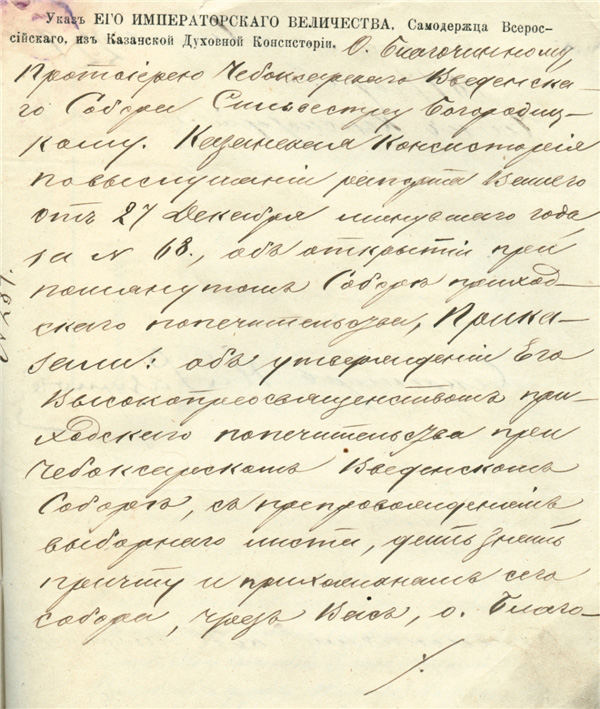 Указъ ЕГО ИМПЕРАТОРСКАГО ВЕЛИЧЕСТВА, Самодержца Всерос-
сійскаго, изъ Казанской Духовной Консисторіи. О. Благочинному,
Протоіерею Чебоксарскаго Введенска-
го Собора Сильвестру Богородиц-
кому. Казанская Консисторія
по выслушаніи рапорта Вашего
отъ 27 Декабря минувшаго года
за № 68., объ открытіи при
помянутомъ Соборѣ приход-
скаго попечительства, Прика-
зали: объ утвержденіи Его
Высокопреосвященствомъ при-
ходскаго попечительства при
Чебоксарскомъ Введенскомъ
Соборѣ, съ препровожденіемъ
выборнаго листа, дать знать
причту и прихожанамъ сего
собора, чрезъ Васъ, о. Благо-
№ 289.